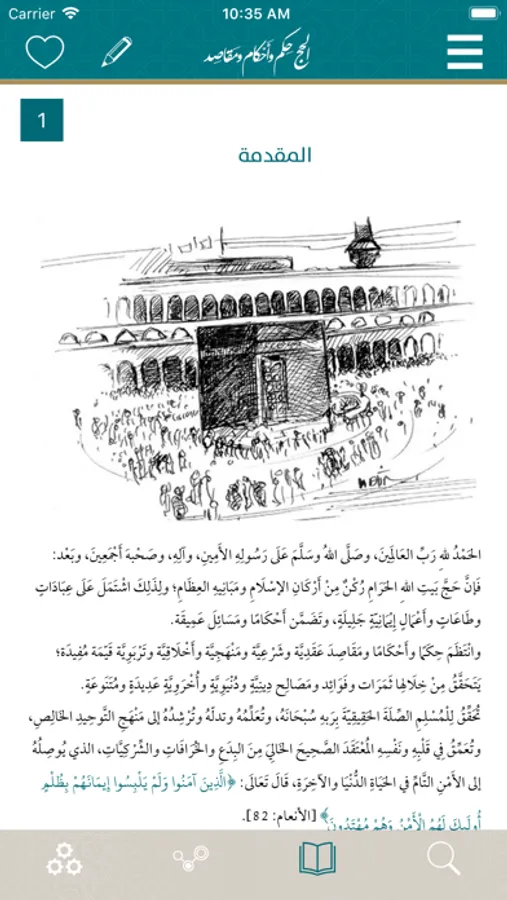 Carrier 10:35 AM
الحج حكم وأحكام ومقاصد
1
المقدمة
الحَمْدُ للهِ رَبِّ العَالَمِينَ، وصَلَّى اللهُ وسَلَّمَ عَلَى رَسُولِهِ الأَمِينِ، وآلِهِ، وصَحْبهِ أَجْمَعِينَ، وبَعْد:
فَإِنَّ حَجَّ بَيتِ اللهِ الحَرَامِ رُكْنٌ مِنْ أَرْكَانِ الإِسْلَامِ ومَبَانِيهِ العِظَامِ؛ ولِذَلِكَ اشْتَمَلَ عَلَى عِبَادَاتٍ
وطَاعَاتٍ وأَعْمَالٍ إِيمَانِيَّةٍ جَلِيلَةٍ، وتَضَمَّنَ أَحْكَامًا ومَسَائِلَ عَمِيقَة.
وانْتَظَمَ حِكَمًا وأَحْكَامًا ومَقَاصِدَ عَقَدِيَّة وشَرْعِيَّة ومَنْهَجِيَّة وأَخْلَاقِيَّة وتَرْبَوِيَّة قَيِّمَة مُفِيدَة؛
يَتَحَقَّقُ مِنْ خِلَالِهَا ثَمَرَات وفَوَائِد ومَصَالِح دِينِيَّةٍ ودُنْيَوِيَّةٍ وأُخْرَوِيَّةٍ عَدِيدَةٍ ومُتَنَوِّعَةٍ.
تُحَقِّقُ لِلْمُسْلِمِ الصِّلَةَ الحَقِيقِيَّةَ بِرَبِهِ سُبْحَانَهُ، وتُعَلِّمُهُ وتدلّهُ وتُرْشِدُهُ إلى مَنْهَجِ التَّوحِيدِ الخَالِصِ،
وتُعَمِّقُ فِي قَلْبِهِ ونَفْسِهِ المُعْتَقَدَ الصَّحِيحَ الخَالِيَ مِنَ البِدَعِ والخُرَافَاتِ والشِّرْكِيَّاتِ، الذي يُوصِلُهُ
إلى الأَمْنِ التَّامِّ في الحَيَاةِ الدُّنْيَا والآخِرَةِ، قَالَ تَعَالَى: ﴿الَّذِينَ آمَنُوا وَلَمْ يَلْبِسُوا إِيمَانَهُمْ بِظُلْمٍ
أُولَئِكَ لَهُمُ الْأَمْنُ وَهُمْ مُهْتَدُونَ﴾ [الأنعام: 82].